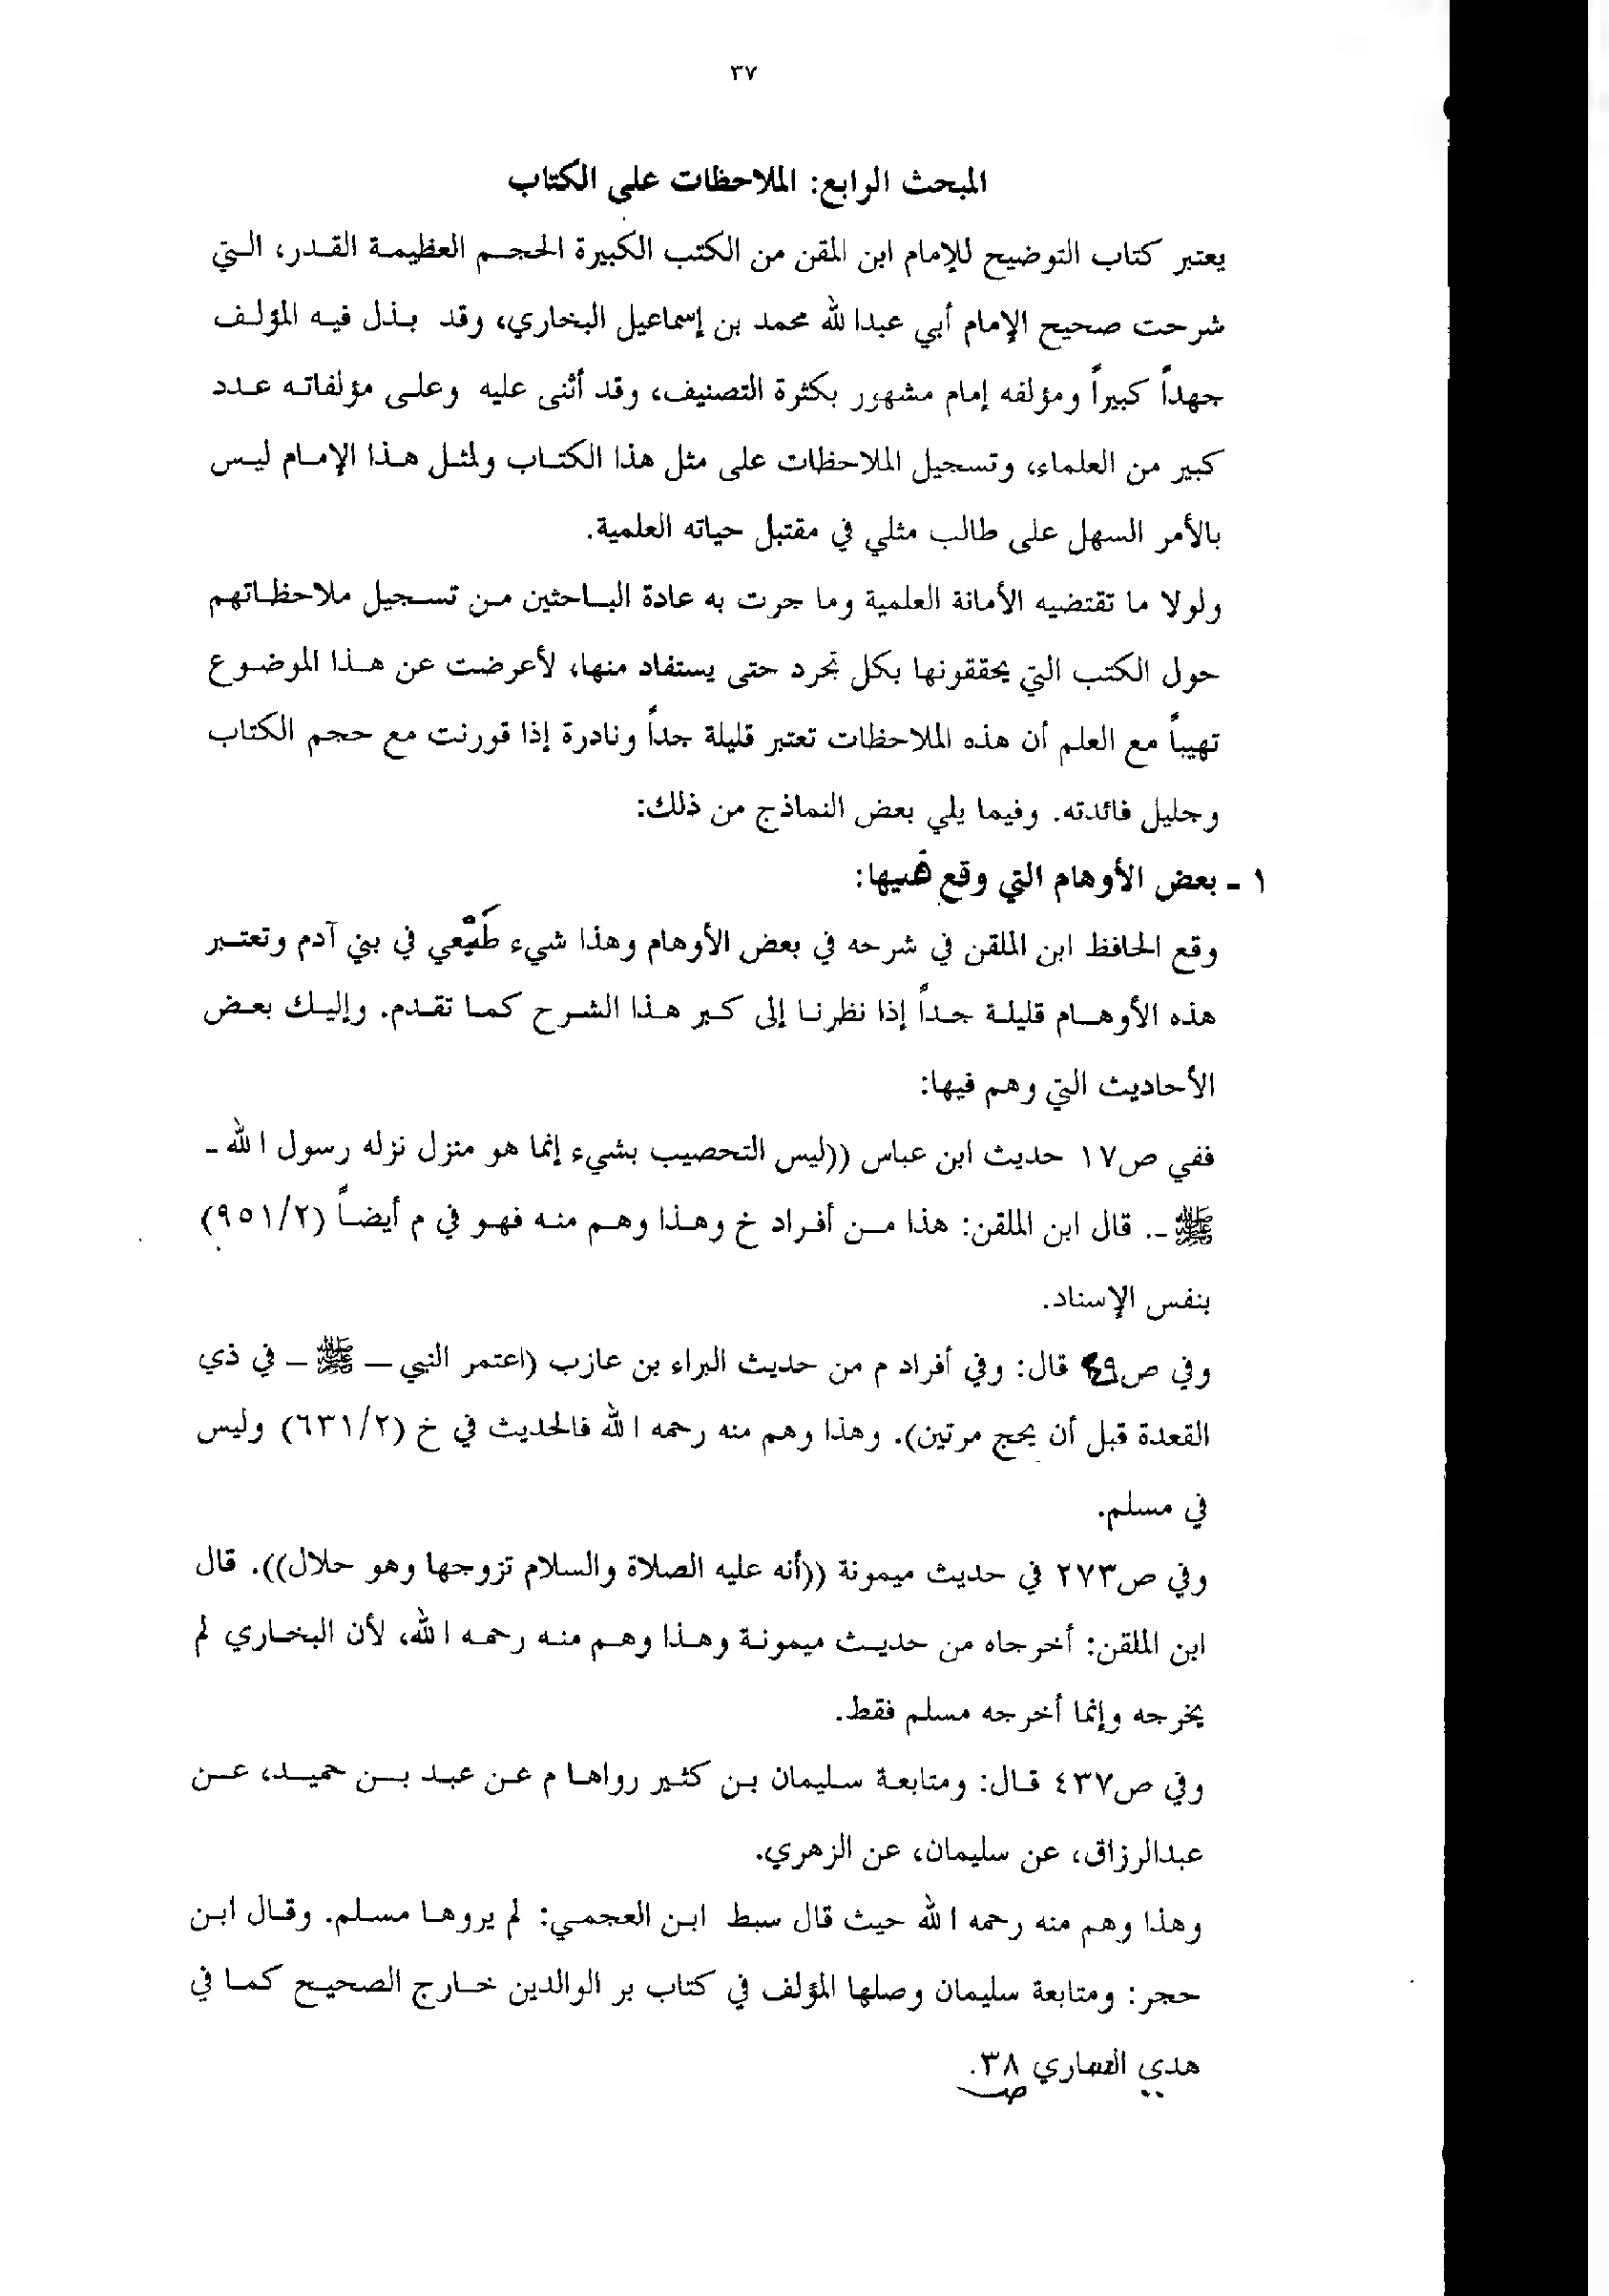 ٣٧
المبحث الرابع: الملاحظات على الكتاب
يعتبر كتاب التوضيح للإمام ابن المقن من الكتب الكبيرة الحجم العظيمة القدر، التي
شرحت صحيح الإمام أبي عبدالله محمد بن إسماعيل البخاري، وقد بذل فيه المؤلف
جهداً كبيراً ومؤلفه إمام مشهور بكثرة التصنيف، وقد أثنى عليه وعلى مؤلفاته عدد
كبير من العلماء، وتسجيل الملاحظات على مثل هذا الكتاب ولمثل هذا الإمام ليس
بالأمر السهل على طالب مثلي في مقتبل حياته العلمية.
ولولا ما تقتضيه الأمانة العلمية وما جرت به عادة الباحثين من تسجيل ملاحظاتهم
حول الكتب التي يحققونها بكل تجرد حتى يستفاد منها، لأعرضت عن هذا الموضوع
تهيباً مع العلم أن هذه الملاحظات تعتبر قليلة جداً ونادرة إذا قورنت مع حجم الكتاب
وجليل فائدته. وفيما يلي بعض النماذج من ذلك:
١ - بعض الأوهام التي وقع فيها:
وقع الحافظ ابن الملقن في شرحه في بعض الأوهام وهذا شيء طَبِيْعي في بني آدم وتعتبر
هذه الأوهام قليلة جداً إذا نظرنا إلى كبر هذا الشرح كما تقدم. وإليك بعض
الأحاديث التي وهم فيها:
ففي ص١٧ حديث ابن عباس ((ليس التحصيب بشيء إنما هو منزل نزله رسول الله -
ﷺ -. قال ابن الملقن: هذا من أفراد خ وهذا وهم منه فهو في م أيضاً (٩٥١/٢)
بنفس الإسناد.
وفي ص٤٩ قال: وفي أفراد م من حديث البراء بن عازب (اعتمر النبي – ﷺ – في ذي
القعدة قبل أن يحج مرتين). وهذا وهم منه رحمه الله فالحديث في خ (٦٣١/٢) وليس
في مسلم.
وفي ص٢٧٣ في حديث ميمونة ((أنه عليه الصلاة والسلام تزوجها وهو حلال)). قال
ابن الملقن: أخرجاه من حديث ميمونة وهذا وهم منه رحمه الله، لأن البخاري لم
يخرجه وإنما أخرجه مسلم فقط.
وفي ص٤٣٧ قال: ومتابعة سليمان بن كثير رواها م عن عبد بن حميد، عن
عبدالرزاق، عن سليمان، عن الزهري.
وهذا وهم منه رحمه الله حيث قال سبط ابن العجمي: لم يروها مسلم. وقال ابن
حجر: ومتابعة سليمان وصلها المؤلف في كتاب بر الوالدين خارج الصحيح كما في
هدي الساري ص ٣٨.